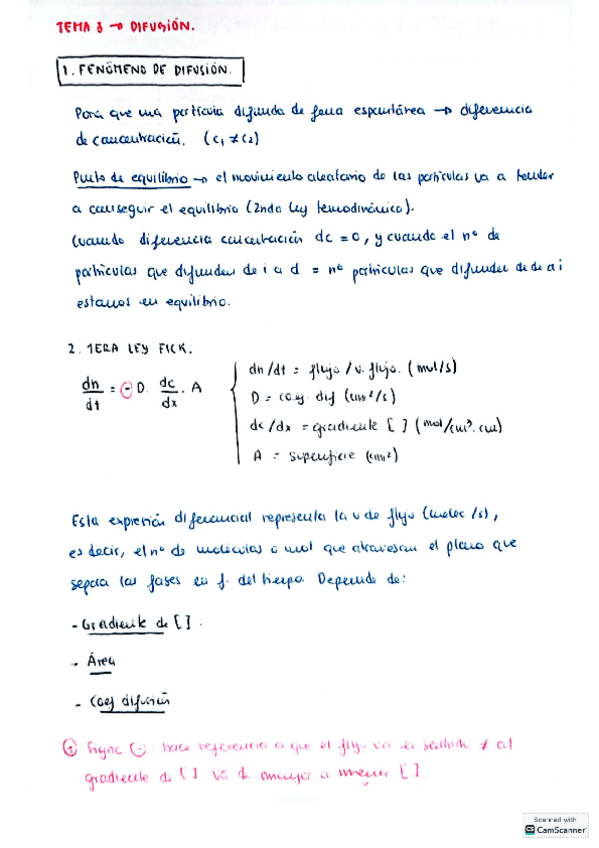 TEMA 3 → DIFUSIÓN.
1. FENÓMENO DE DIFUSIÓN.
Para que una partícula difunda de forma espontánea → diferencia
de concentración. (c₁ ≠ c₂)
Punto de equilibrio → el movimiento aleatorio de las partículas va a tender
a conseguir el equilibrio (2nda ley termodinámica).
Cuando diferencia concentración dc = 0, y cuando el nº de
partículas que difunden de i a d = nº partículas que difunden de d a i
estamos en equilibrio.
2. 1ERA LEY FICK.
dn/dt = (-) D · dc/dx · A
dn/dt = flujo / v. flujo. (mol/s)
D = coef. dif (cm²/s)
dc/dx = gradiente [ ] (mol/cm³·cm)
A = superficie (cm²)
Esta expresión diferencial representa la v de flujo (molec/s),
es decir, el nº de moléculas o mol que atraviesan el plano que
separa las fases en f. del tiempo. Depende de:
- Gradiente de [ ].
- Área
- Coef difusión
Signo (-): hace referencia a que el flujo va en sentido ≠ al
gradiente de [ ] va de mayor a menor [ ]
Scanned with
CS CamScanner